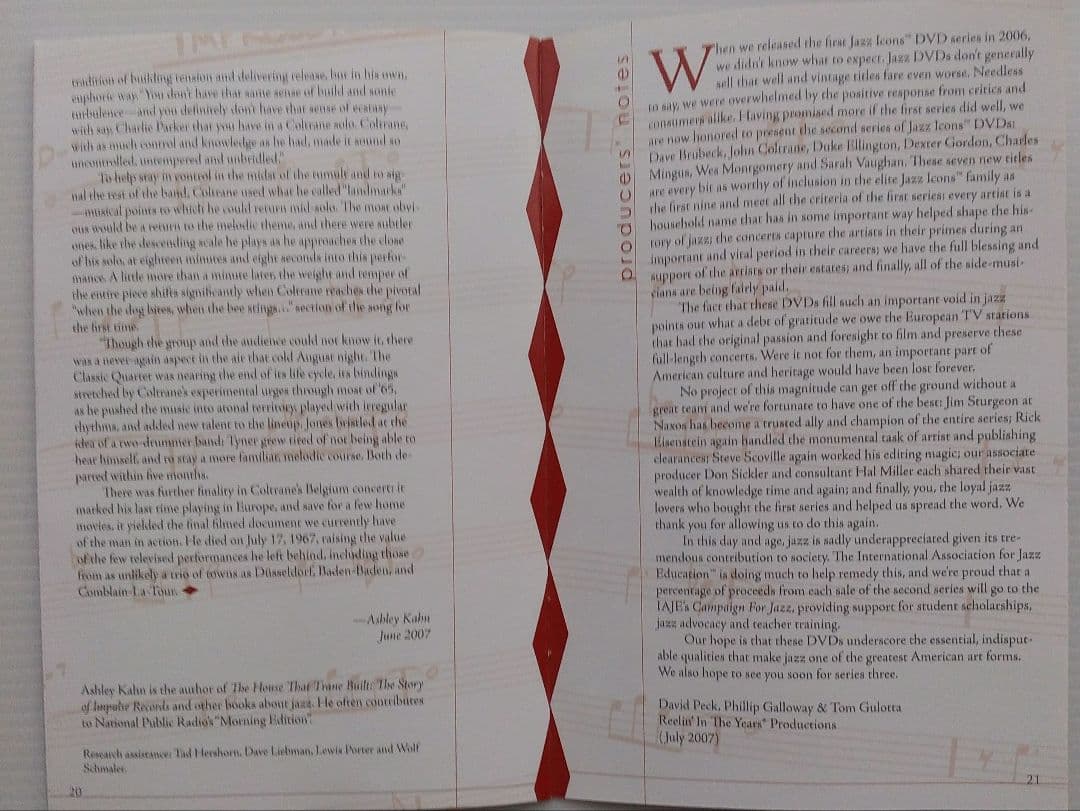 tradition of building tension and delivering release, but in his own,
euphoric way. "You don't have that same sense of build and sonic
turbulence—and you definitely don't have that sense of ecstasy—
with say, Charlie Parker that you have in a Coltrane solo. Coltrane,
with as much control and knowledge as he had, made it sound so
uncontrolled, untempered and unbridled."
To help stay in control in the midst of the tumult and to sig-
nal the rest of the band, Coltrane used what he called "landmarks"
—musical points to which he could return mid-solo. The most obvi-
ous would be a return to the melodic theme, and there were subtler
ones, like the descending scale he plays as he approaches the close
of his solo, at eighteen minutes and eight seconds into this perfor-
mance. A little more than a minute later, the weight and temper of
the entire piece shifts significantly when Coltrane reaches the pivotal
"when the dog bites, when the bee stings…" section of the song for
the first time.
"Though the group and the audience could not know it, there
was a never-again aspect in the air that cold August night. The
Classic Quartet was nearing the end of its life cycle, its bindings
stretched by Coltrane's experimental urges through most of '65,
as he pushed the music into atonal territory, played with irregular
rhythms, and added new talent to the lineup. Jones bristled at the
idea of a two-drummer band; Tyner grew tired of not being able to
hear himself, and to stay a more familiar, melodic course. Both de-
parted within five months.
There was further finality in Coltrane's Belgium concert: it
marked his last time playing in Europe, and save for a few home
movies, it yielded the final filmed document we currently have
of the man in action. He died on July 17, 1967, raising the value
of the few televised performances he left behind, including those
from as unlikely a trio of towns as Düsseldorf, Baden-Baden, and
Comblain-La-Tour.
—Ashley Kahn
June 2007
Ashley Kahn is the author of The House That Trane Built: The Story
of Impulse Records and other books about jazz. He often contributes
to National Public Radio's "Morning Edition".
Research assistance: Tad Hershorn, Dave Liebman, Lewis Porter and Wolf
Schmaler.
20
producers' notes
When we released the first Jazz Icons™ DVD series in 2006,
we didn't know what to expect. Jazz DVDs don't generally
sell that well and vintage titles fare even worse. Needless
to say, we were overwhelmed by the positive response from critics and
consumers alike. Having promised more if the first series did well, we
are now honored to present the second series of Jazz Icons™ DVDs:
Dave Brubeck, John Coltrane, Duke Ellington, Dexter Gordon, Charles
Mingus, Wes Montgomery and Sarah Vaughan. These seven new titles
are every bit as worthy of inclusion in the elite Jazz Icons™ family as
the first nine and meet all the criteria of the first series: every artist is a
household name that has in some important way helped shape the his-
tory of jazz; the concerts capture the artists in their primes during an
important and vital period in their careers; we have the full blessing and
support of the artists or their estates; and finally, all of the side-musi-
cians are being fairly paid.
The fact that these DVDs fill such an important void in jazz
points out what a debt of gratitude we owe the European TV stations
that had the original passion and foresight to film and preserve these
full-length concerts. Were it not for them, an important part of
American culture and heritage would have been lost forever.
No project of this magnitude can get off the ground without a
great team and we're fortunate to have one of the best: Jim Sturgeon at
Naxos has become a trusted ally and champion of the entire series; Rick
Eisenstein again handled the monumental task of artist and publishing
clearances; Steve Scoville again worked his editing magic; our associate
producer Don Sickler and consultant Hal Miller each shared their vast
wealth of knowledge time and again; and finally, you, the loyal jazz
lovers who bought the first series and helped us spread the word. We
thank you for allowing us to do this again.
In this day and age, jazz is sadly underappreciated given its tre-
mendous contribution to society. The International Association for Jazz
Education™ is doing much to help remedy this, and we're proud that a
percentage of proceeds from each sale of the second series will go to the
IAJE's Campaign For Jazz, providing support for student scholarships,
jazz advocacy and teacher training.
Our hope is that these DVDs underscore the essential, indisput-
able qualities that make jazz one of the greatest American art forms.
We also hope to see you soon for series three.
David Peck, Phillip Galloway & Tom Gulotta
Reelin' In The Years® Productions
(July 2007)
21